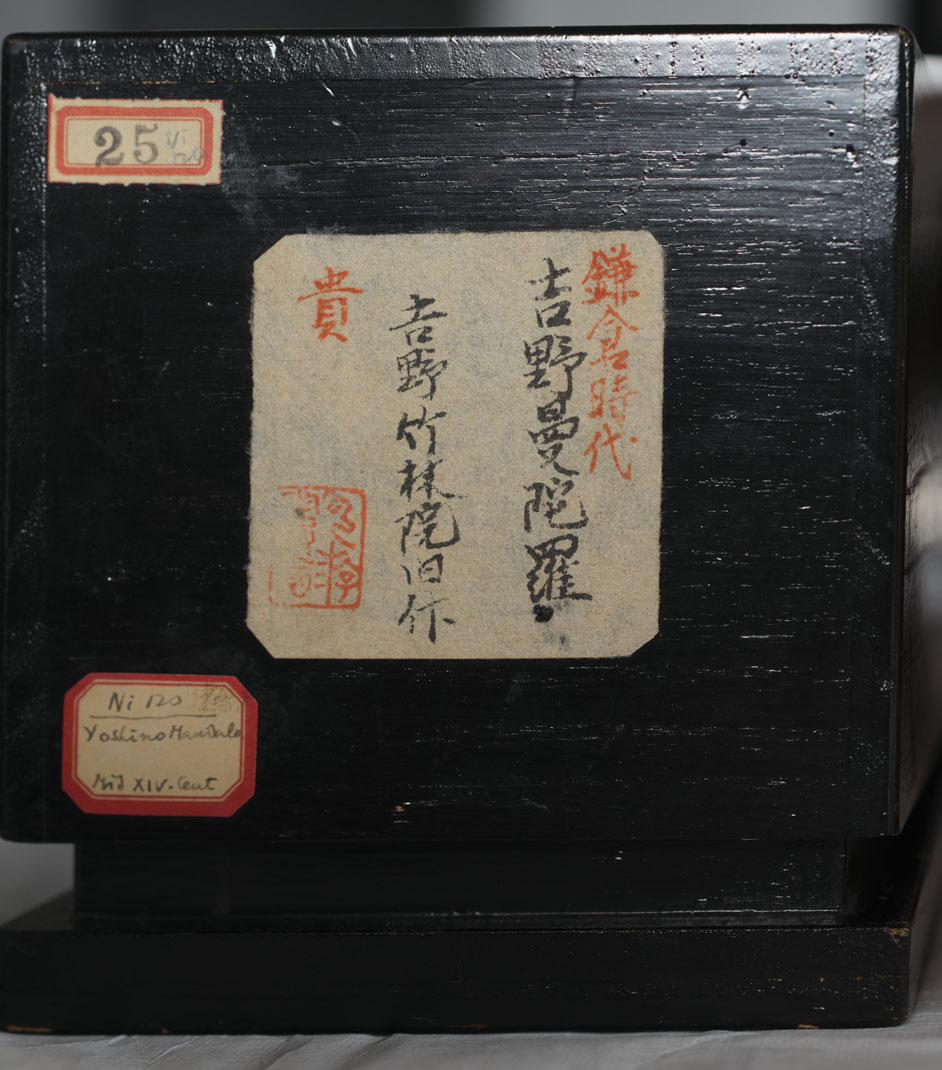 25 Ni 120
鎌倉時代
吉野曼陀羅
吉野竹林院旧作
貴
Ni 120
Yoshino Mandala
Mid XIV. Cent